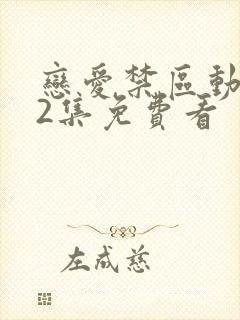 戀愛禁區動
2集免費看
左成慈